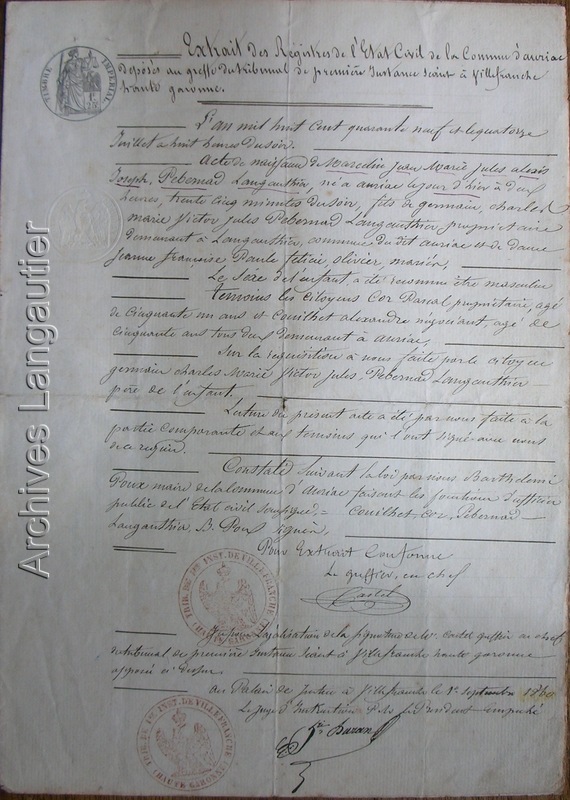 TIMBRE IMPERIAL
Extrait des Registres de l'Etat Civil de la Commune d'auriac
déposés au greffe du tribunal de première Instance séant à Villefranche
haute garonne.
L'an mil huit cent quarante neuf et le quatorze
Juillet a huit heures du soir.
Acte de naissance de Marcelin Jean Marie Jules alexis
Joseph, Pebernad Langauthier, né a auriac le jour d'hier à deux
heures, trente cinq minutes du soir, fils de germain, charles
marie Victor Jules Pebernad Langauthier propriétaire
demeurant à Langauthier, commune du dit auriac et de dame
Jeanne françoise Paule felicie olivier mariés,
Le Sexe de l'enfant a été reconnu être masculin
temoins les citoyens Cor Pascal propriétaire, agé
de cinquante un ans et Couilhet alexandre négociant, agé de
cinquante ans tous deux demeurant à auriac,
Sur la requisition à nous faite par le citoyen
germain charles Marie Victor Jules, Pebernad Langauthier
père de l'enfant.
Lecture du présent acte a été par nous faite a la
partie comparante et aux temoins qui l'ont signé avec nous
de ce requis.
Constaté suivant la loi par nous Barthelemi
Poux maire de la commune d'auriac faisant les fonctions d'officier
public de l'Etat civil soussigné = Couilhet, Cor, Pebernad-
Langauthier, B. Poux signés,
Pour Extrait Conforme
Le greffier en chef
Castel
TRIB. DE 1re INST. DE VILLEFRANCHE
HAUTE GARONNE
Légalisation de la signature de Mr Castel greffier en chef
du tribunal de première Instance séant à Villefranche haute garonne
apposée ci dessus
au Palais de Justice à Villefranche le 1er Septembre 1860
Le Juge d'Instruction Le Président empêché
TRIB. DE 1re INST. DE VILLEFRANCHE
HAUTE GARONNE
Archives Langautier